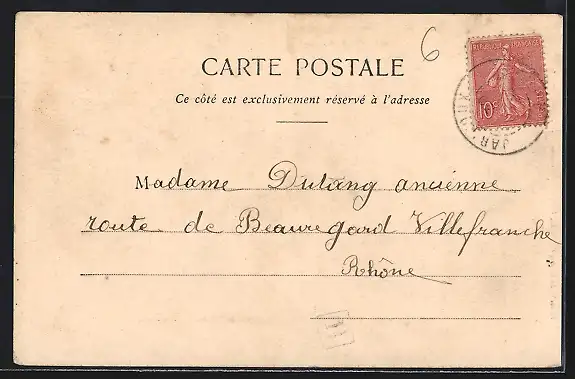 6
RÉPUBLIQUE FRANÇAISE
10c
CARTE POSTALE
Ce côté est exclusivement réservé à l'adresse
Madame Dutang ancienne
route de Beauregard Villefranche
Rhône